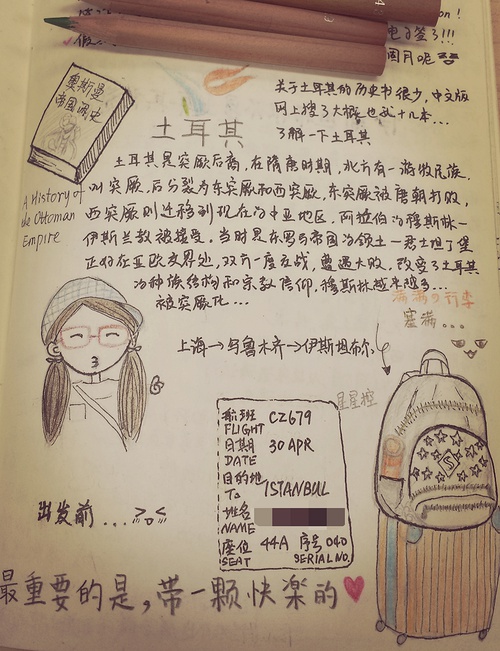 电子签了!!!
圆月呢
奥斯曼
帝国闲史
关于土耳其的历史书很少,中文版
网上搜了大概也就十几本...
了解一下土耳其
土耳其
土耳其是突厥后裔,在隋唐时期,北方有一游牧民族,
叫突厥,后分裂为东突厥和西突厥,东突厥被唐朝打败,
西突厥则迁移到现在的中亚地区,阿拉伯的穆斯林—
伊斯兰教被接受,当时是东罗马帝国的领土—君士坦丁堡
正好在亚欧交界处,双方一度交战,遭遇大败,改变了土耳其
的种族结构和宗教信仰,穆斯林越来越多...
被突厥化...
A History of
the Ottoman
Empire
满满的行李
塞满...
上海→乌鲁木齐→伊斯坦布尔
星星控
航班 CZ679
FLIGHT
日期 30 APR
DATE
目的地
To ISTANBUL
姓名
NAME
座位 44A 序号 040
SEAT SERIAL NO.
出发前...
最重要的是,带一颗快乐的